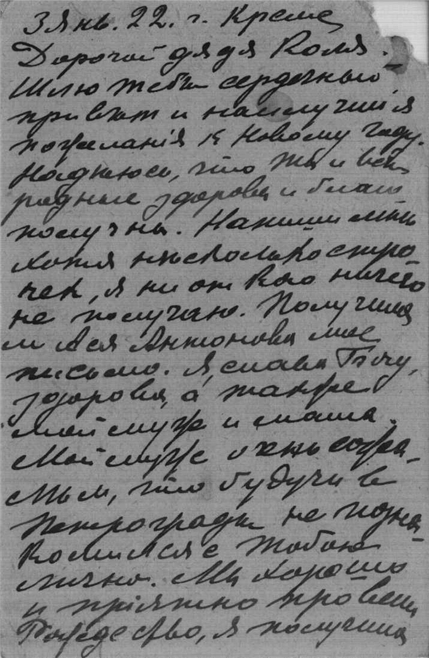 3 янв. 22. г. Кремс
Дорогой дядя Коля.
Шлю тебѣ сердечный
привѣт и наилучшiя
пожеланiя к Новому году.
Надѣюсь, что ты и всѣ
родные здоровы и благо
получны. Напиши мнѣ
хотя нѣсколько стро
чек, я ни от кого ничего
не получаю. Получила
ли Ася Антонова мое
письмо. Я, слава Богу,
здорова, а также
мой муж и мама.
Мой муж очень сожа-
, что будучи в
Петроградѣ не позна-
комился с тобою
лично. Мы хорошо
и прiятно провели
Рождество, я получила